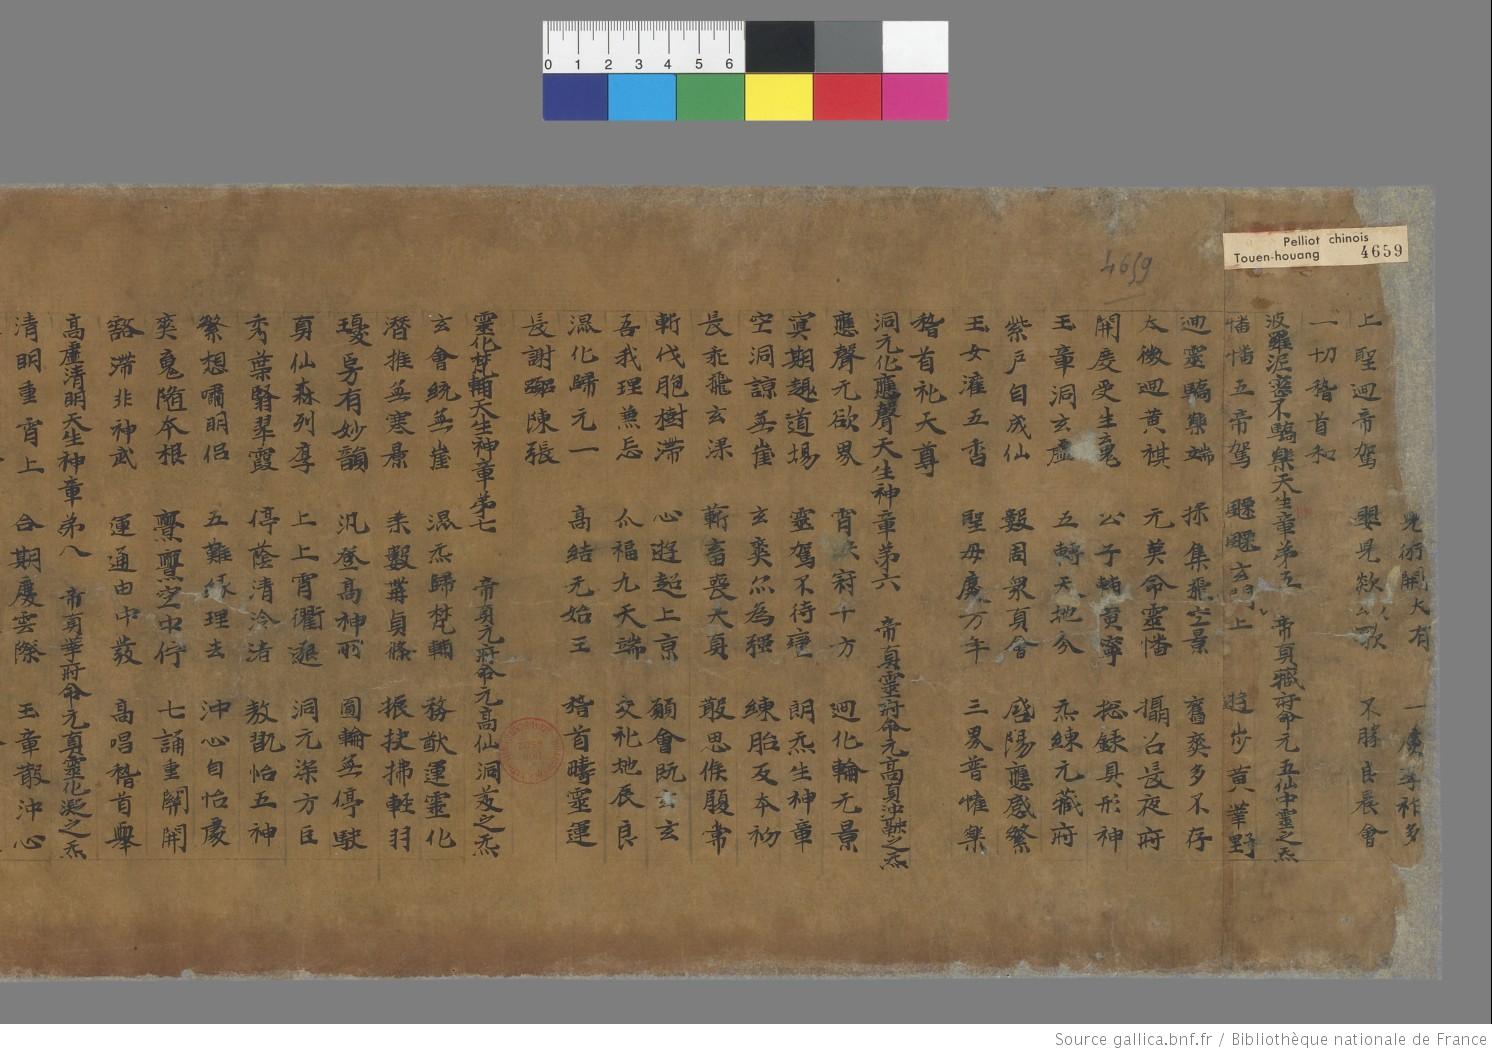 0 1 2 3 4 5 6
Pelliot chinois
Touen-houang 4659
4659
開大有 一 祚多
上聖迴帝駕 是見 歌 不勝良晨會
一切稽首和
波羅泥蜜不驕樂天生章第五 帝真藏府命元五仙中靈之炁
愔愔五帝駕 飄飄玄 上 步黄華野
迴靈驕樂端 採集飛空景 奮爽多不存
太微迴黄祺 元英命靈幡 攝召長夜府
開度受生魂 公子輔黄寧 揔録具形神
玉章洞玄虚 五轉天地分 炁練元藏府
紫戶自成仙 數周衆真會 感陽應感繁
玉女灌五香 聖母慶万年 三界普懽樂
稽首礼天尊
洞元化應聲天生神章第六 帝真靈府命元高真沖融之炁
應聲元欲界 霄 府十方 迴化輪元景
冥期趣道場 靈駕不待 朗炁生神章
空洞諒無崖 玄爽亦為強 練胎反本初
長乖飛玄梁 蘄畜喪天真 散思候履常
斬伐胞樹滯 心遊超上京 願會既 玄
吾我理兼忘 介福九天端 交礼地辰良
混化歸元一 高結元始王 稽首疇靈運
長謝 陳張
靈化梵輔天生神章第七 帝真元府命元高仙洞笈之炁
玄會統無崖 混炁歸梵輔 務猷運靈化
潜推無寒暑 乘數構貞條 振拔拂輕羽
瓊房有妙韻 汎登高神所 圓輪無停駛
真仙森列序 上上霄衢遐 洞元深方巨
秀葉翳翠霞 停蔭清泠渚 遨翫怡五神
繁想嘯明侣 五難緣理去 沖心自怡處
爽魂隨本根 亹亹空中佇 七誦重關開
豁滯非神武 運通由中發 高唱稽首舉
高虚清明天生神章第八 帝真華府命元真靈化凝之炁
清明重霄上 合期慶雲際 玉章散沖心